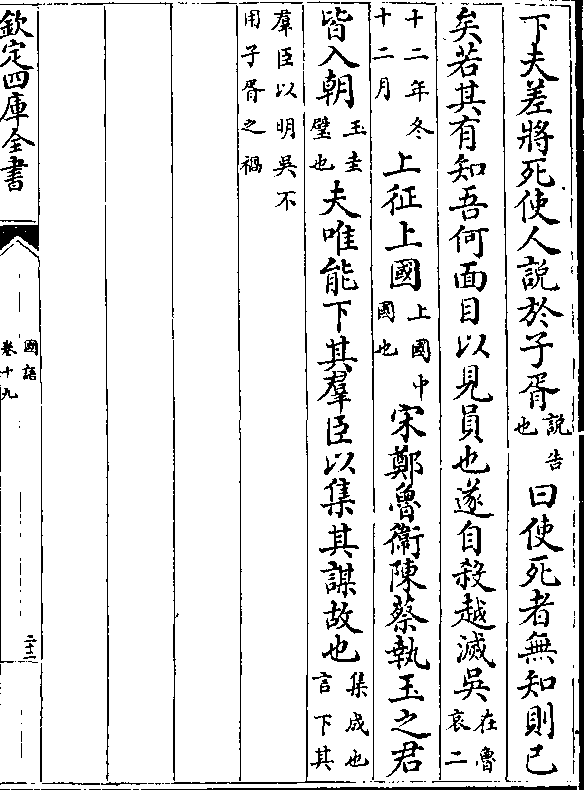 下夫差將死使人說於子胥說告也曰使死者無知則已
矣若其有知吾何面目以見員也遂自殺越滅吳在魯哀二
十二年冬十二月上征上國上國中國也宋鄭魯衞陳蔡執玉之君
皆入朝玉圭璧也夫唯能下其羣臣以集其謀故也集成也言下其
羣臣以明吳不用子胥之禍
欽定四庫全書
國語
卷十九
二十二